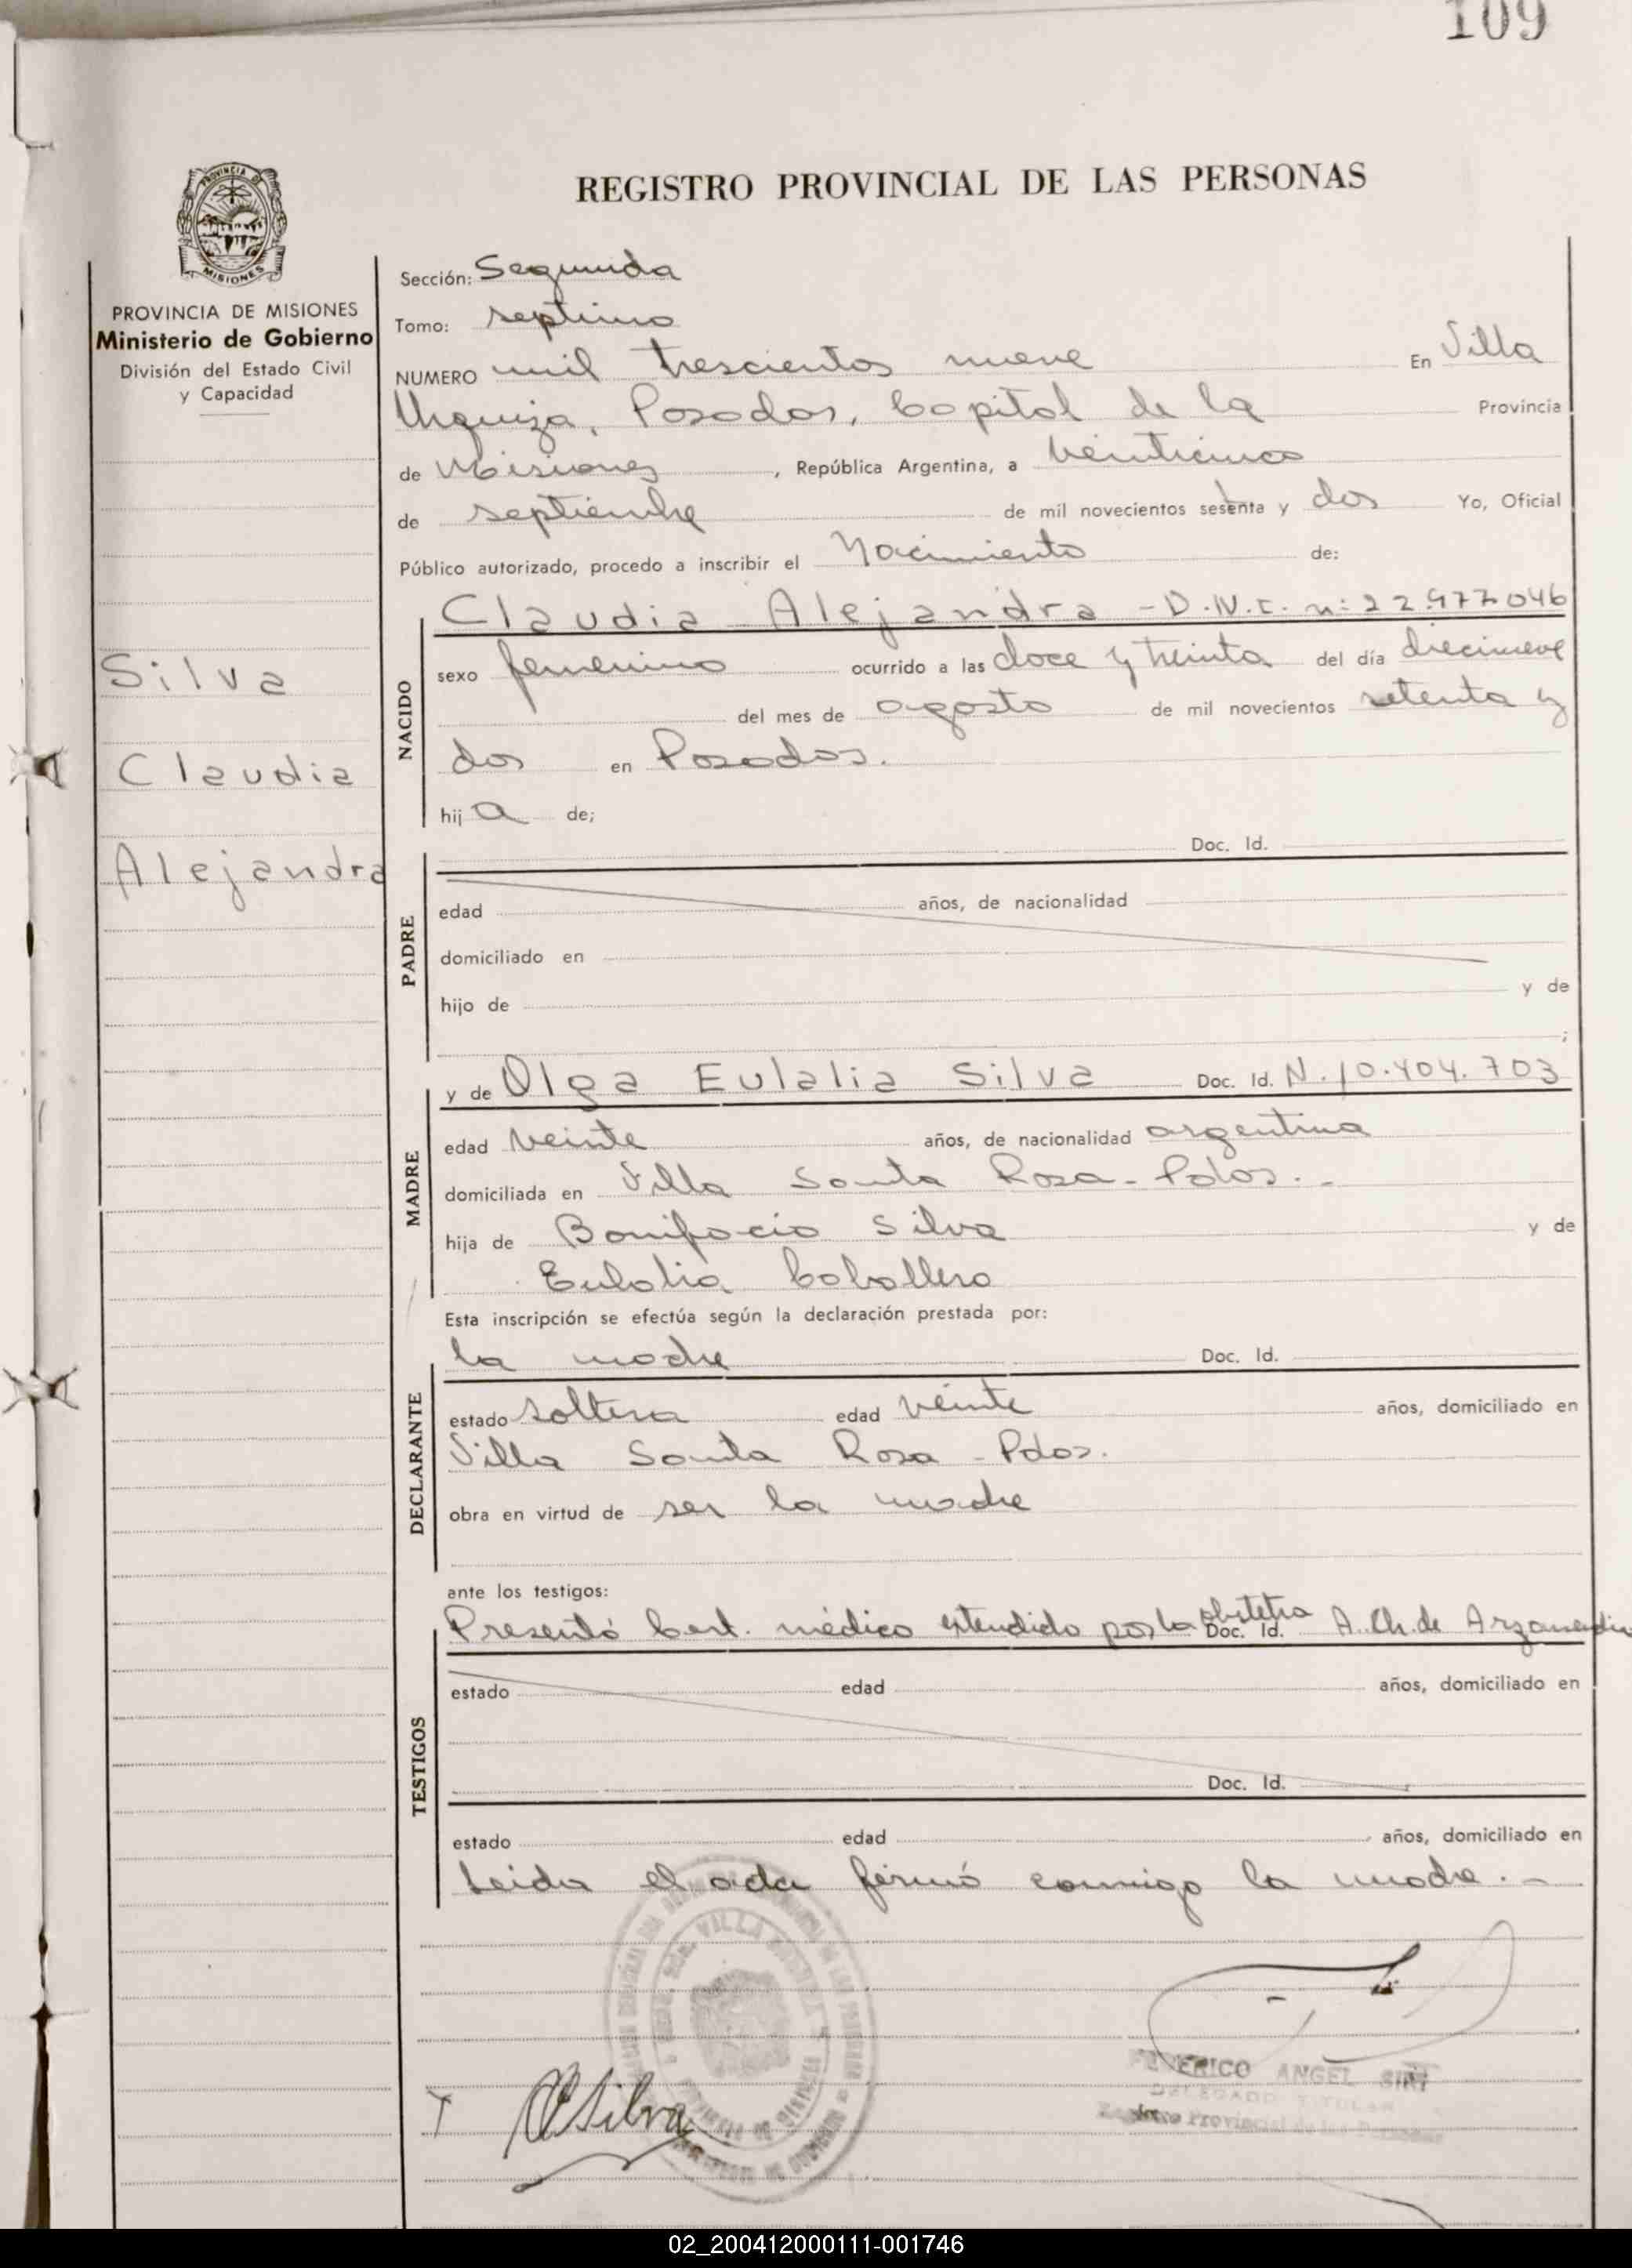 109
REGISTRO PROVINCIAL DE LAS PERSONAS
PROVINCIA DE MISIONES
Ministerio de Gobierno
División del Estado Civil
y Capacidad
Silva
Claudia
Alejandra
Sección: Segunda
Tomo: septimo
NUMERO mil trescientos nueve En Villa
Urquiza, Posadas, Capital de la Provincia
de Misiones, República Argentina, a veinticinco
de septiembre de mil novecientos setenta y dos Yo, Oficial
Público autorizado, procedo a inscribir el Nacimiento de:
NACIDO
Claudia Alejandra - D.N.I. nº: 22.977.046
sexo femenino ocurrido a las doce y treinta del día diecinueve
del mes de agosto de mil novecientos setenta y
dos en Posadas.
hij a de;
PADRE
Doc. Id.
edad años, de nacionalidad
domiciliado en
hijo de y de
;
MADRE
y de Olga Eulalia Silva Doc. Id. N. 10.404.703
edad veinte años, de nacionalidad argentina
domiciliada en Villa Santa Rosa - Pdas. -
hija de Bonifacio Silva y de
Eulalia Caballero
Esta inscripción se efectúa según la declaración prestada por:
DECLARANTE
la madre Doc. Id.
estado soltera edad veinte años, domiciliado en
Villa Santa Rosa - Pdas.
obra en virtud de ser la madre
ante los testigos:
TESTIGOS
Presentó Cert. médico extendido por la obstetra Doc. Id. A. Ch. de
estado edad años, domiciliado en
Doc. Id.
estado edad años, domiciliado en
Leida el acta firmó conmigo la madre. -
VILLA
OESilva
FEDERICO ANGEL SIRI
DELEGADO TITULAR
Registro Provincial de las Personas
02_200412000111-001746